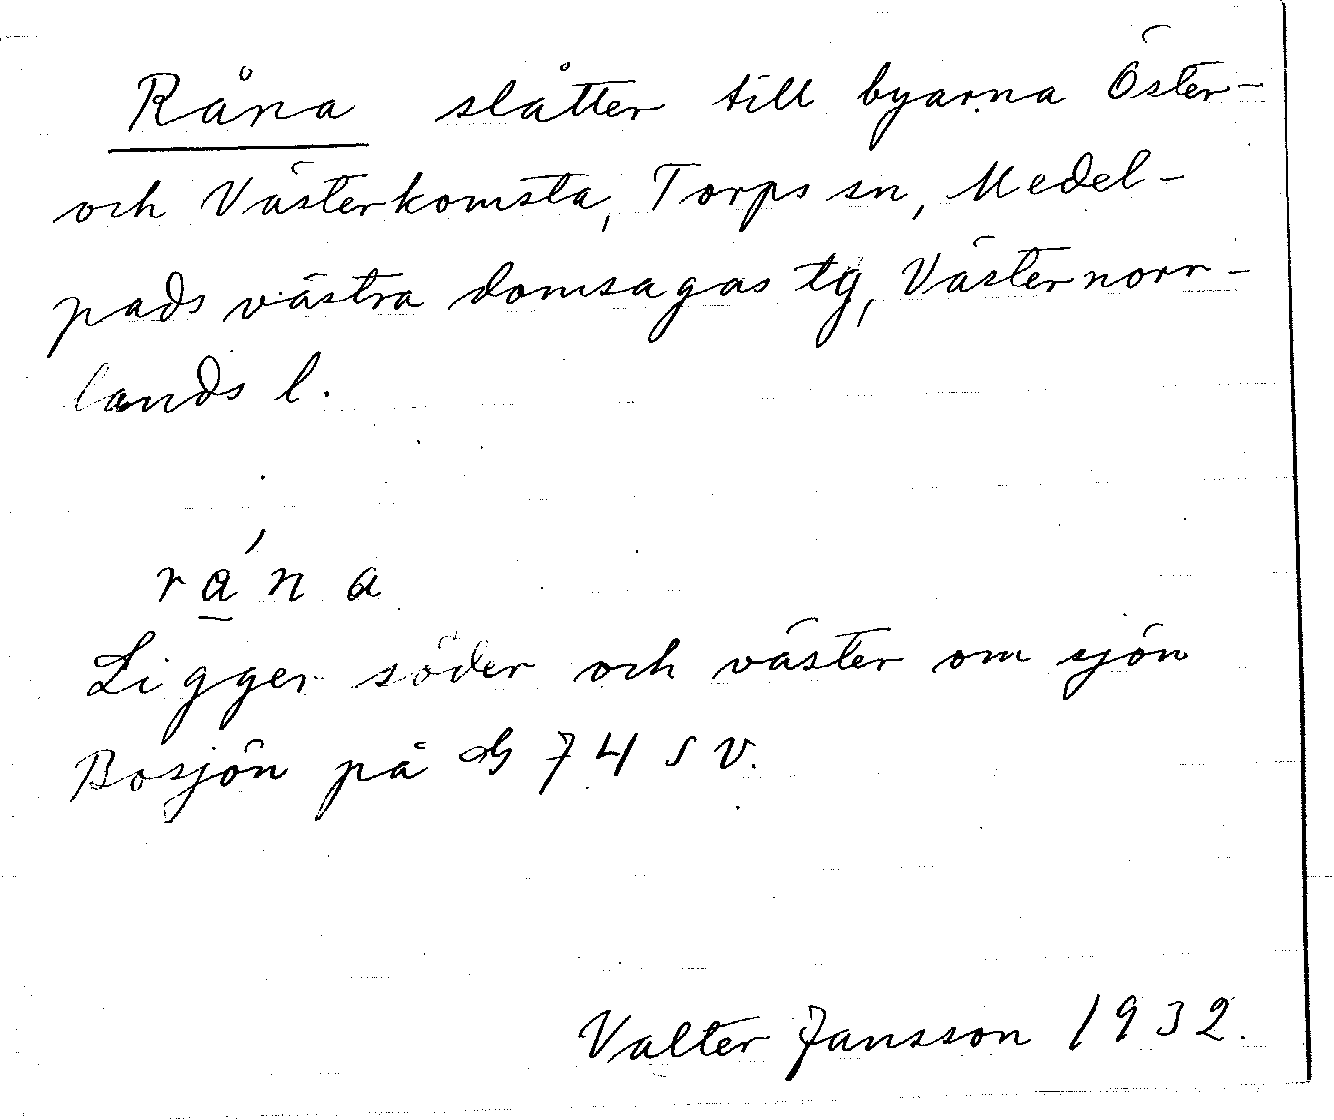 Råna slåtter till byarna Öster-
och Västerkomsta, Torps sn, Medel-
pads västra domsagas tg, Västernorr-
lands l.
ra̱´na
Ligger söder och väster om sjön
Bosjön på G 74 SV.
Valter Jansson 1932.